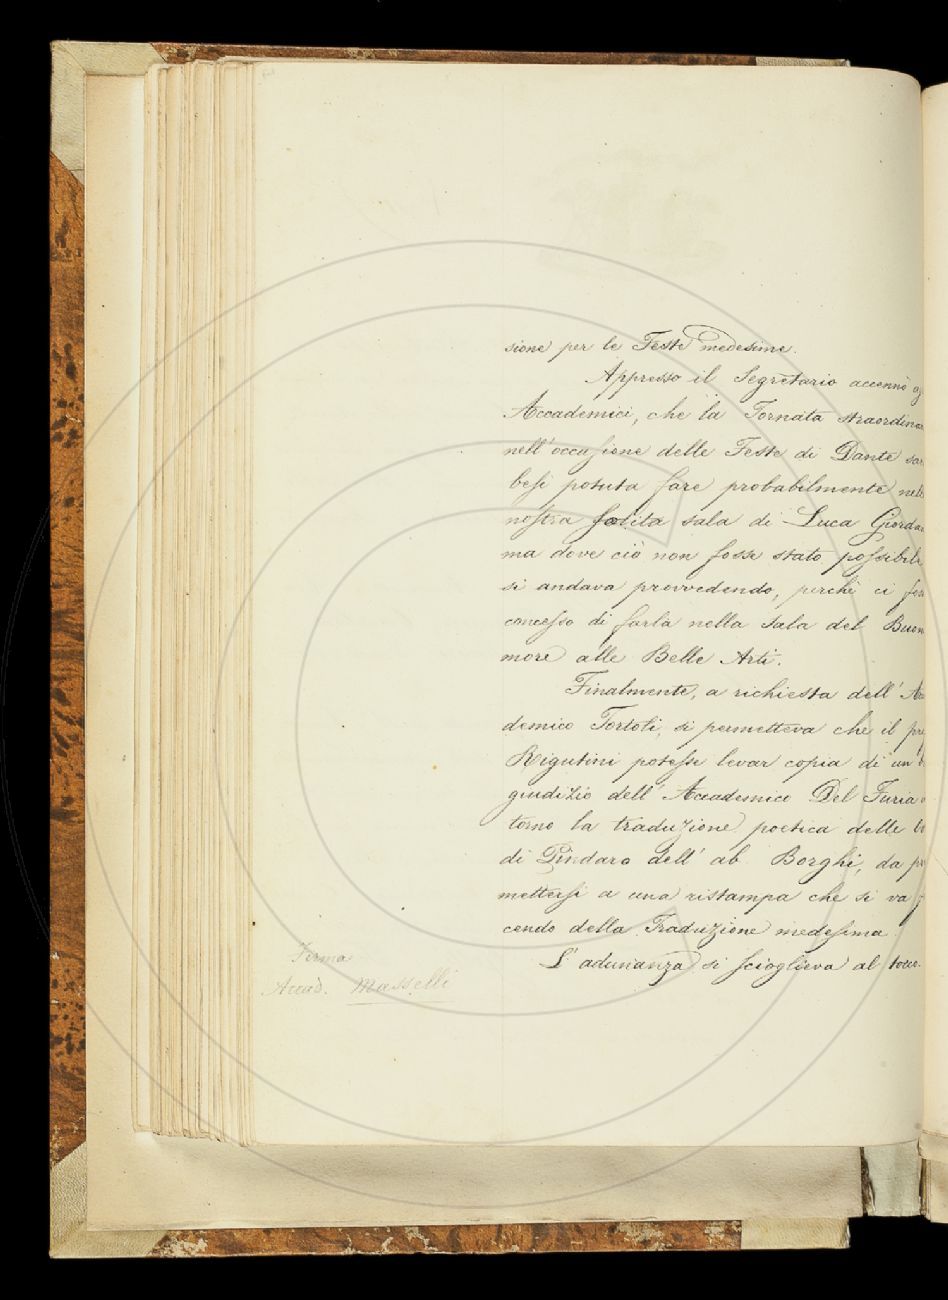 sione per le Feste medesime.
Appresso il Segretario accennò ag
Accademici, che la Tornata straordina
nell'occasione delle Feste di Dante sar
besi potuta fare probabilmente nell
nostra solita sala di Luca Giorda
ma dove ciò non fosse stato possibile
si andava provvedendo, perchè ci fos
concesso di farla nella Sala del Buon
more alle Belle Arti.
Finalmente, a richiesta dell' Ac
demico Tortoli, si permetteva che il pr
Rigutini potesse levar copia di un
giudizio dell' Accademico Del Furia
torno la traduzione poetica delle
di Pindaro dell' ab. Borghi, da pr
mettersi a una ristampa che si va f
cendo della Traduzione medesima
L' adunanza si scioglieva al tocco.
Firma
Accad. Masselli